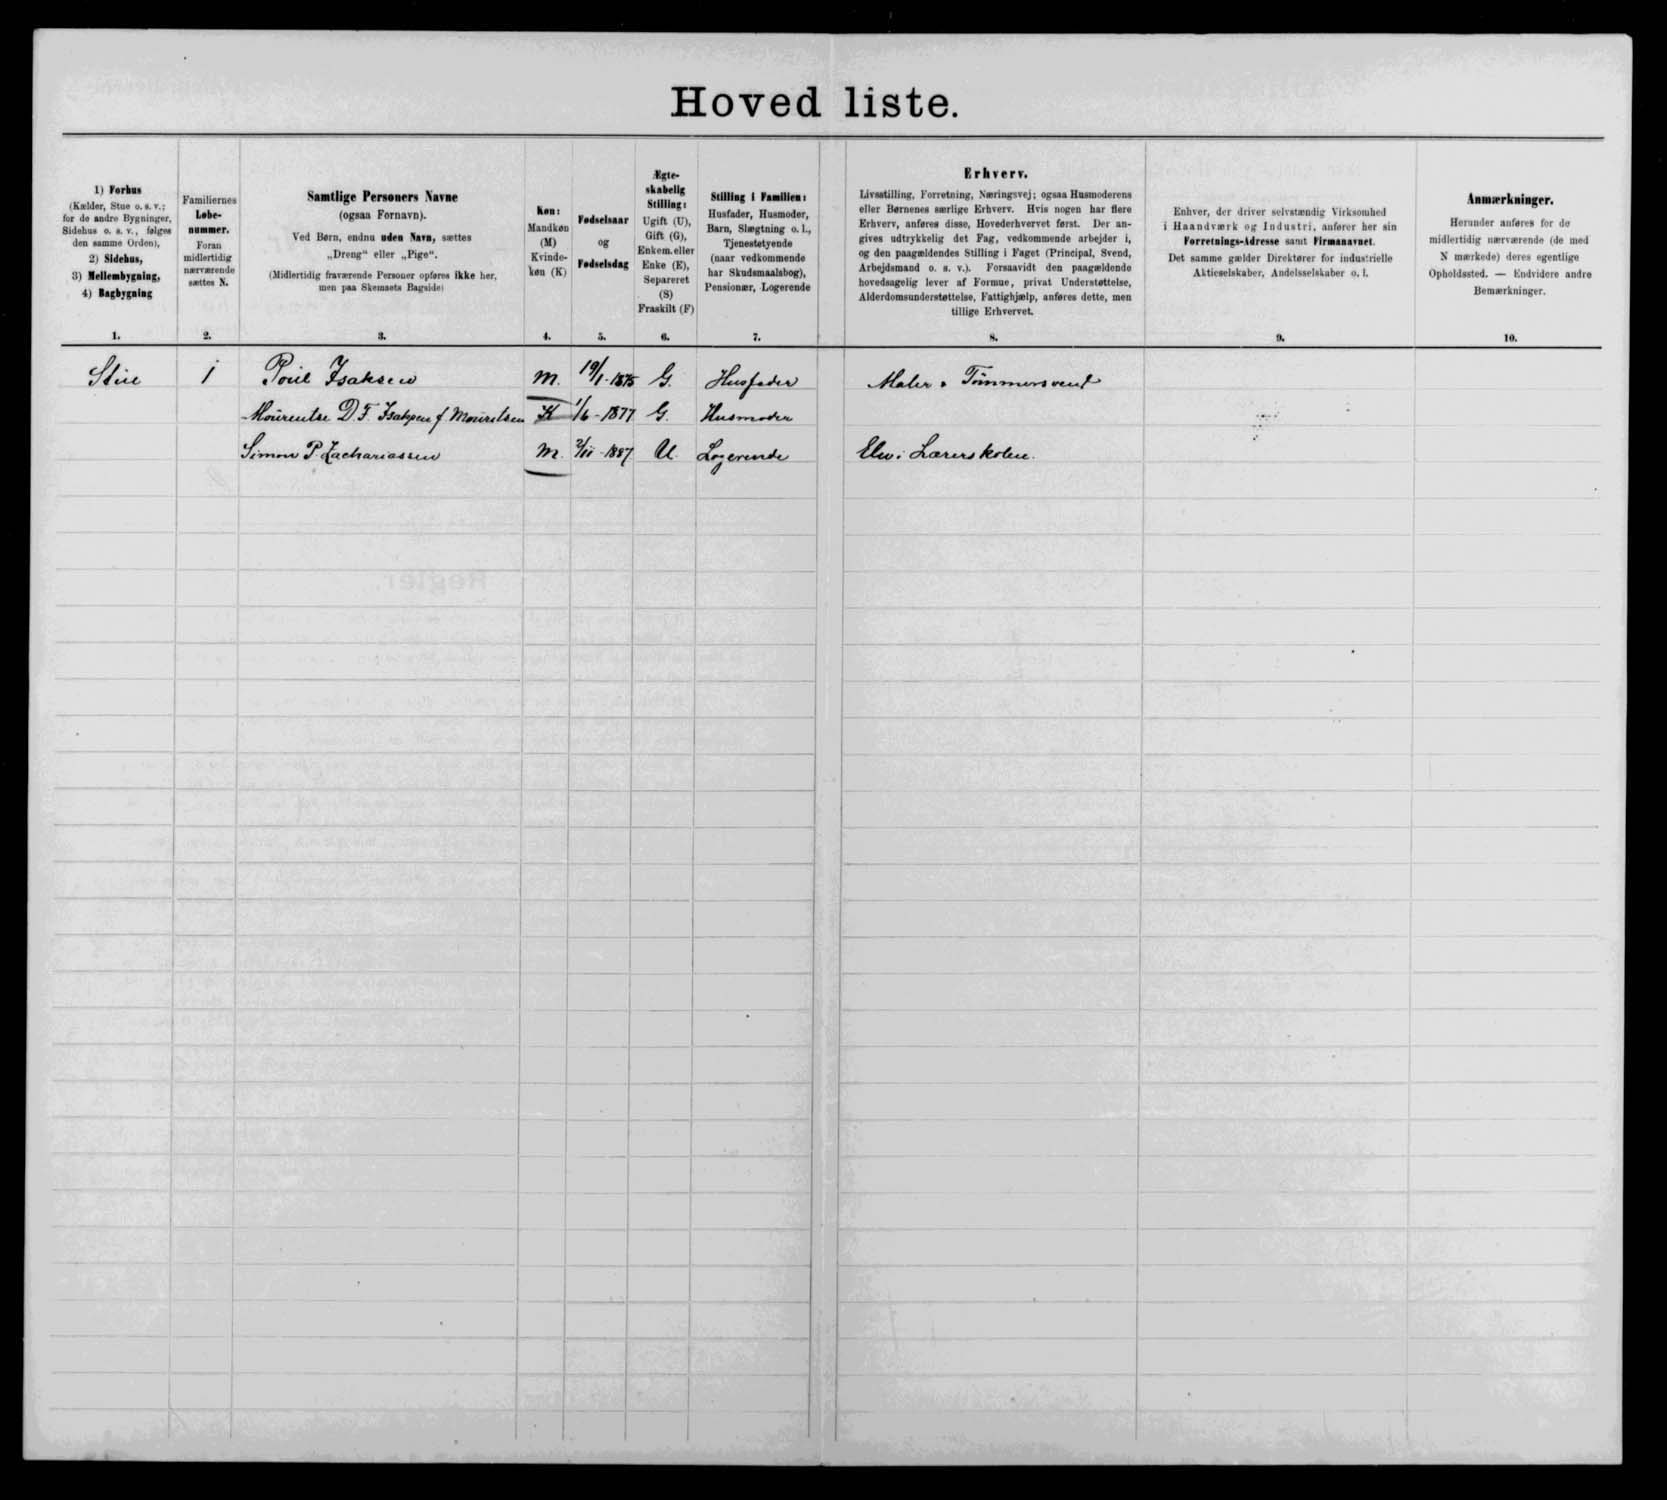 Hoved liste.
1) Forhus
(Kælder, Stue o. s. v.;
for de andre Bygninger,
Sidehus o. s. v., følges
den samme Orden),
2) Sidehus,
3) Mellembygning,
4) Bagbygning
1.
Familiernes
Løbe-
nummer.
Foran
midlertidig
nærværende
sættes N.
2.
Samtlige Personers Navne
(ogsaa Fornavn).
Ved Børn, endnu uden Navn, sættes
„Dreng" eller „Pige".
(Midlertidig fraværende Personer opføres ikke her,
men paa Skemaets Bagside)
3.
Køn:
Mandkøn
(M)
Kvinde-
køn (K)
4.
Fødselsaar
og
Fødselsdag
5.
Ægte-
skabelig
Stilling:
Ugift (U),
Gift (G),
Enkem. eller
Enke (E),
Separeret
(S)
Fraskilt (F)
6.
Stilling i Familien:
Husfader, Husmoder,
Barn, Slægtning o. l.,
Tjenestetyende
(naar vedkommende
har Skudsmaalsbog),
Pensionær, Logerende
7.
Erhverv.
Livsstilling, Forretning, Næringsvej; ogsaa Husmoderens
eller Børnenes særlige Erhverv. Hvis nogen har flere
Erhverv, anføres disse, Hovederhvervet først. Der an-
gives udtrykkelig det Fag, vedkommende arbejder i,
og den paagældendes Stilling i Faget (Principal, Svend,
Arbejdsmand o. s. v.). Forsaavidt den paagældende
hovedsagelig lever af Formue, privat Understøttelse,
Alderdomsunderstøttelse, Fattighjælp, anføres dette, men
tillige Erhvervet.
8.
Enhver, der driver selvstændig Virksomhed
i Haandværk og Industri, anfører her sin
Forretnings-Adresse samt Firmanavnet.
Det samme gælder Direktører for industrielle
Aktieselskaber, Andelsselskaber o. l.
9.
Anmærkninger.
Herunder anføres for de
midlertidig nærværende (de med
N mærkede) deres egentlige
Opholdssted. — Endvidere andre
Bemærkninger.
10.
Stue 1 Poul Isaksen M. 19/1-1875 G. Husfader Maler & Tømmersvend
Mourentse D. F. Isaksen f. Mouritsen K 1/6-1877 G. Husmoder
Simon P. Zachariassen M. 2/11-1887 U. Logerende Elev i Lærerskolen.